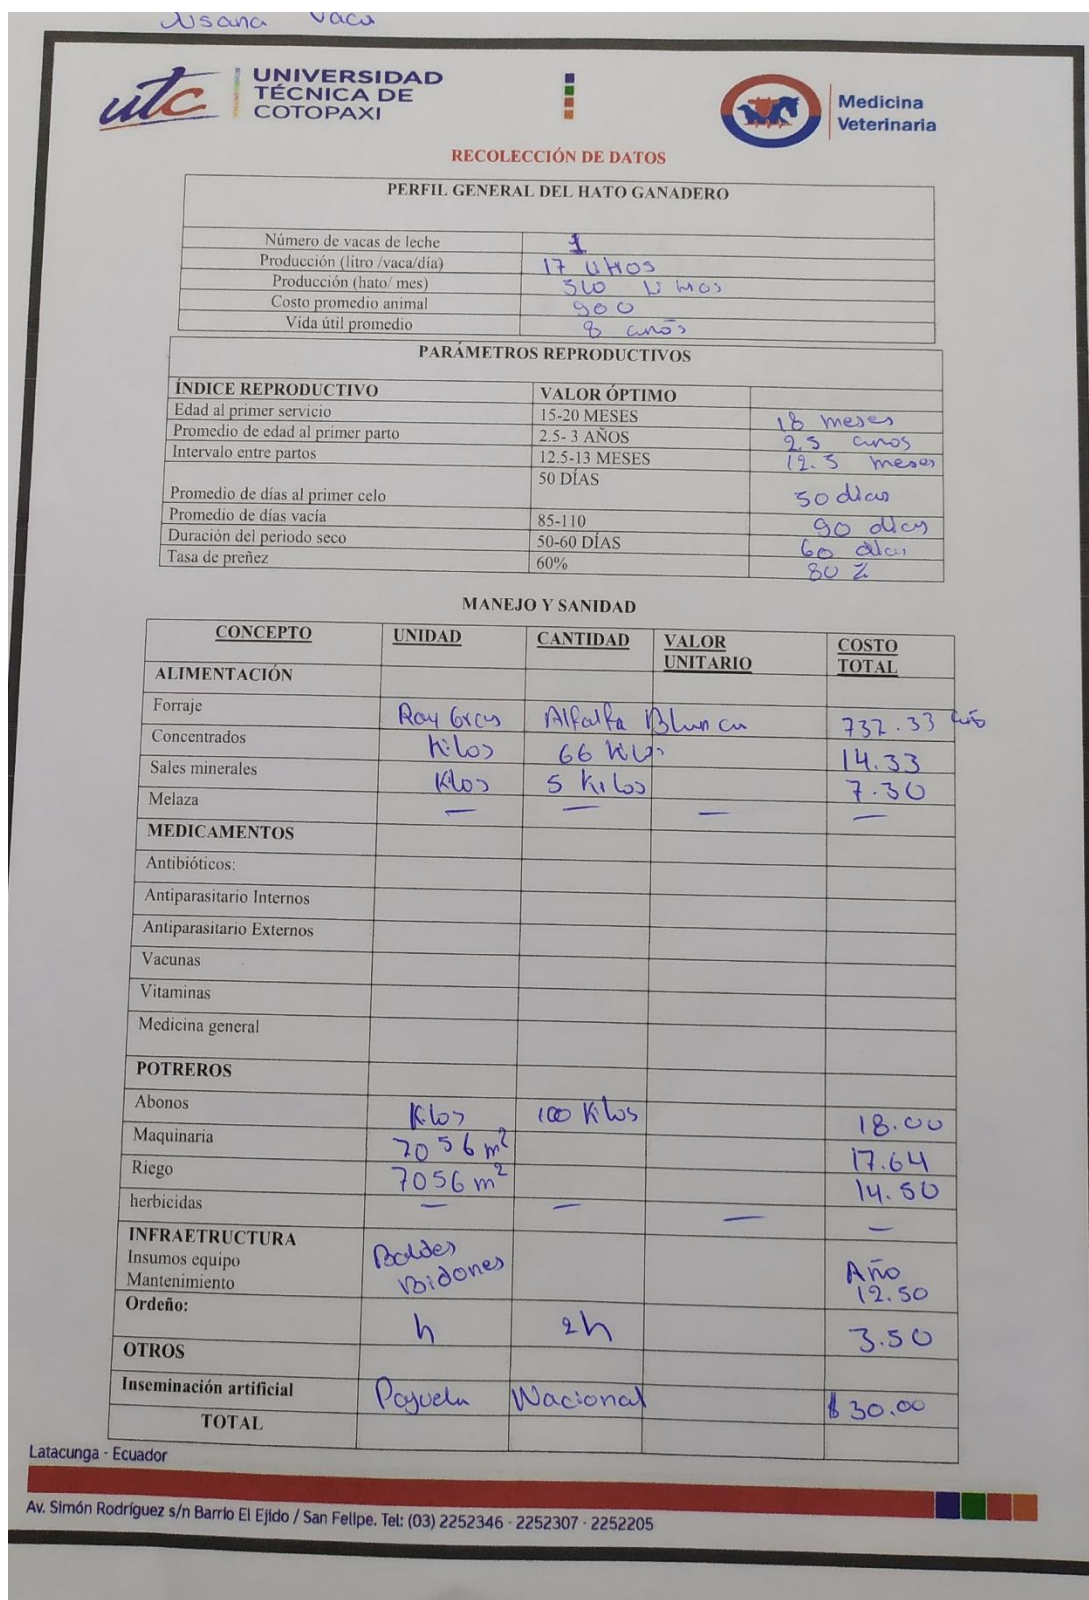 Susana Vaca
utc UNIVERSIDAD TÉCNICA DE COTOPAXI
Medicina Veterinaria
RECOLECCIÓN DE DATOS
PERFIL GENERAL DEL HATO GANADERO
Número de vacas de leche 1
Producción (litro /vaca/día) 17 litros
Producción (hato/ mes) 510 litros
Costo promedio animal 900
Vida útil promedio 8 años
PARÁMETROS REPRODUCTIVOS
ÍNDICE REPRODUCTIVO VALOR ÓPTIMO
Edad al primer servicio 15-20 MESES 18 meses
Promedio de edad al primer parto 2.5- 3 AÑOS 2.5 años
Intervalo entre partos 12.5-13 MESES 12.5 meses
Promedio de días al primer celo 50 DÍAS 50 dias
Promedio de días vacía 85-110 90 dias
Duración del periodo seco 50-60 DÍAS 60 dias
Tasa de preñez 60% 80 %
MANEJO Y SANIDAD
CONCEPTO UNIDAD CANTIDAD VALOR UNITARIO COSTO TOTAL
ALIMENTACIÓN
Forraje Ray Gras Alfalfa Blanca 732.33 año
Concentrados Kilos 66 Kilos 14.33
Sales minerales Kilos 5 Kilos 7.30
Melaza — — — —
MEDICAMENTOS
Antibióticos:
Antiparasitario Internos
Antiparasitario Externos
Vacunas
Vitaminas
Medicina general
POTREROS
Abonos Kilos 100 Kilos 18.00
Maquinaria 7056 m² 17.64
Riego 7056 m² 14.50
herbicidas — — — —
INFRAETRUCTURA
Insumos equipo Baldes Año
Mantenimiento Bidones 12.50
Ordeño: h 2h 3.50
OTROS
Inseminación artificial Pajuela Nacional $30.00
TOTAL
Latacunga - Ecuador
Av. Simón Rodríguez s/n Barrio El Ejido / San Felipe. Tel: (03) 2252346 - 2252307 - 2252205